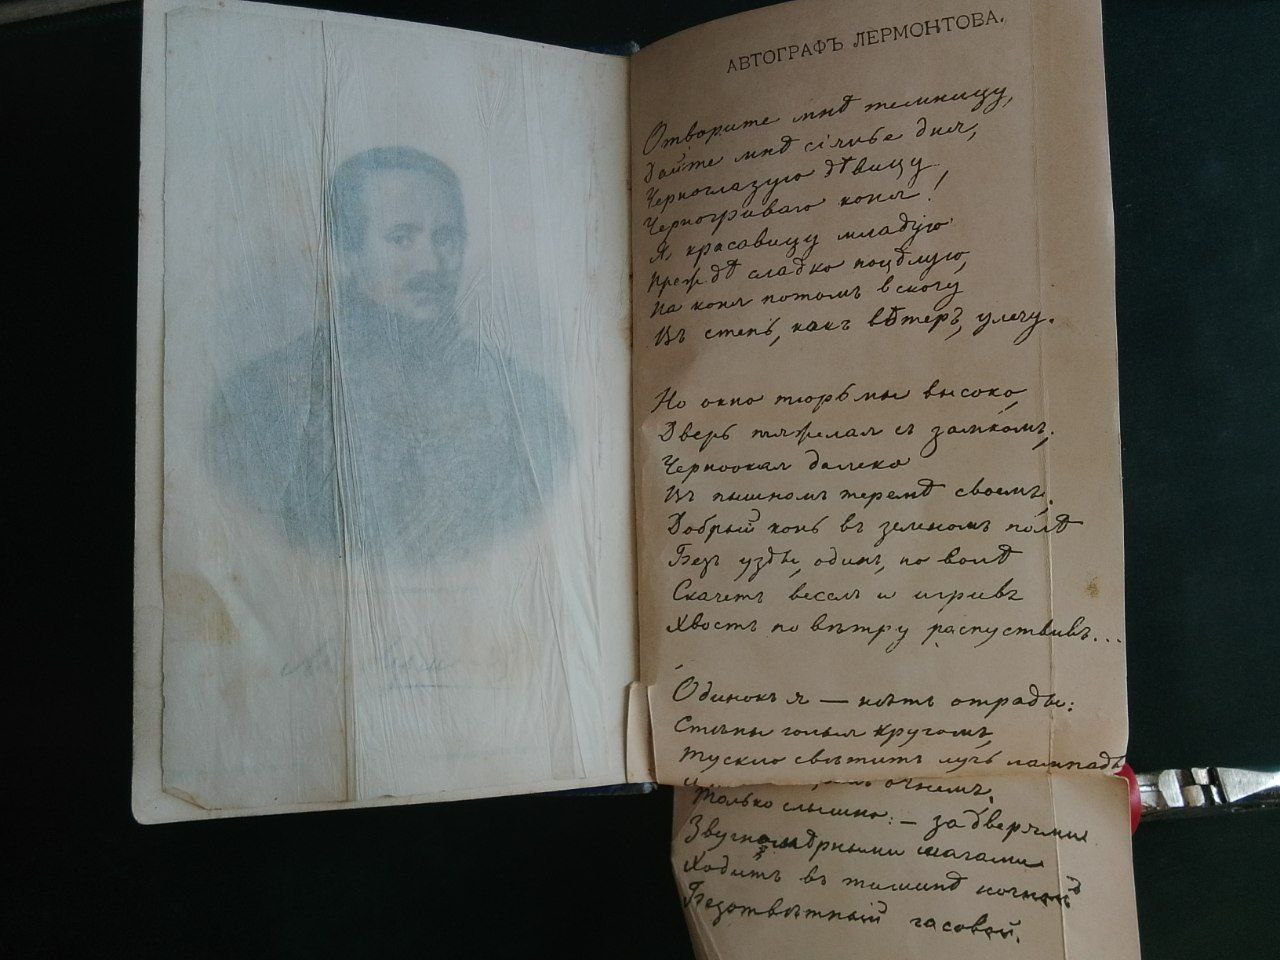 АВТОГРАФЪ ЛЕРМОНТОВА.
Отворите мнѣ темницу,
Дайте мнѣ сіянье дня,
Черноглазую дѣвицу,
Черногриваго коня!
Я, красавицу младую
Прежде сладко поцѣлую,
На коня потомъ вскочу
Въ степь, какъ вѣтеръ, улечу.
Но окно тюрьмы высоко,
Дверь тяжелая съ замкомъ;
Черноокая далеко
Въ пышномъ теремѣ своемъ;
Добрый конь въ зеленомъ полѣ
Безъ узды, одинъ, по волѣ
Скачетъ веселъ и игривъ
Хвостъ по вѣтру распустивъ...
Одинокъ я — нѣтъ отрады:
Стѣны голыя кругомъ,
Тускло свѣтитъ лучъ лампады
огнемъ,
Только слышно: — за дверями
Звучномѣрными шагами
Ходитъ въ тишинѣ ночной
Безотвѣтный часовой.